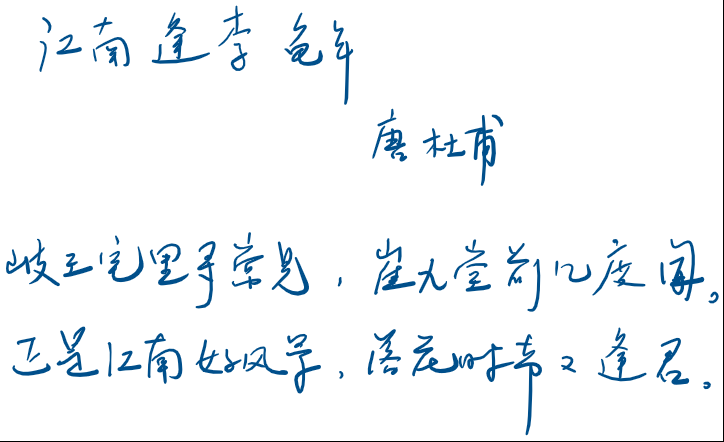 江南逢李龟年
唐 杜甫
岐王宅里寻常见，崔九堂前几度闻。
正是江南好风景，落花时节又逢君。